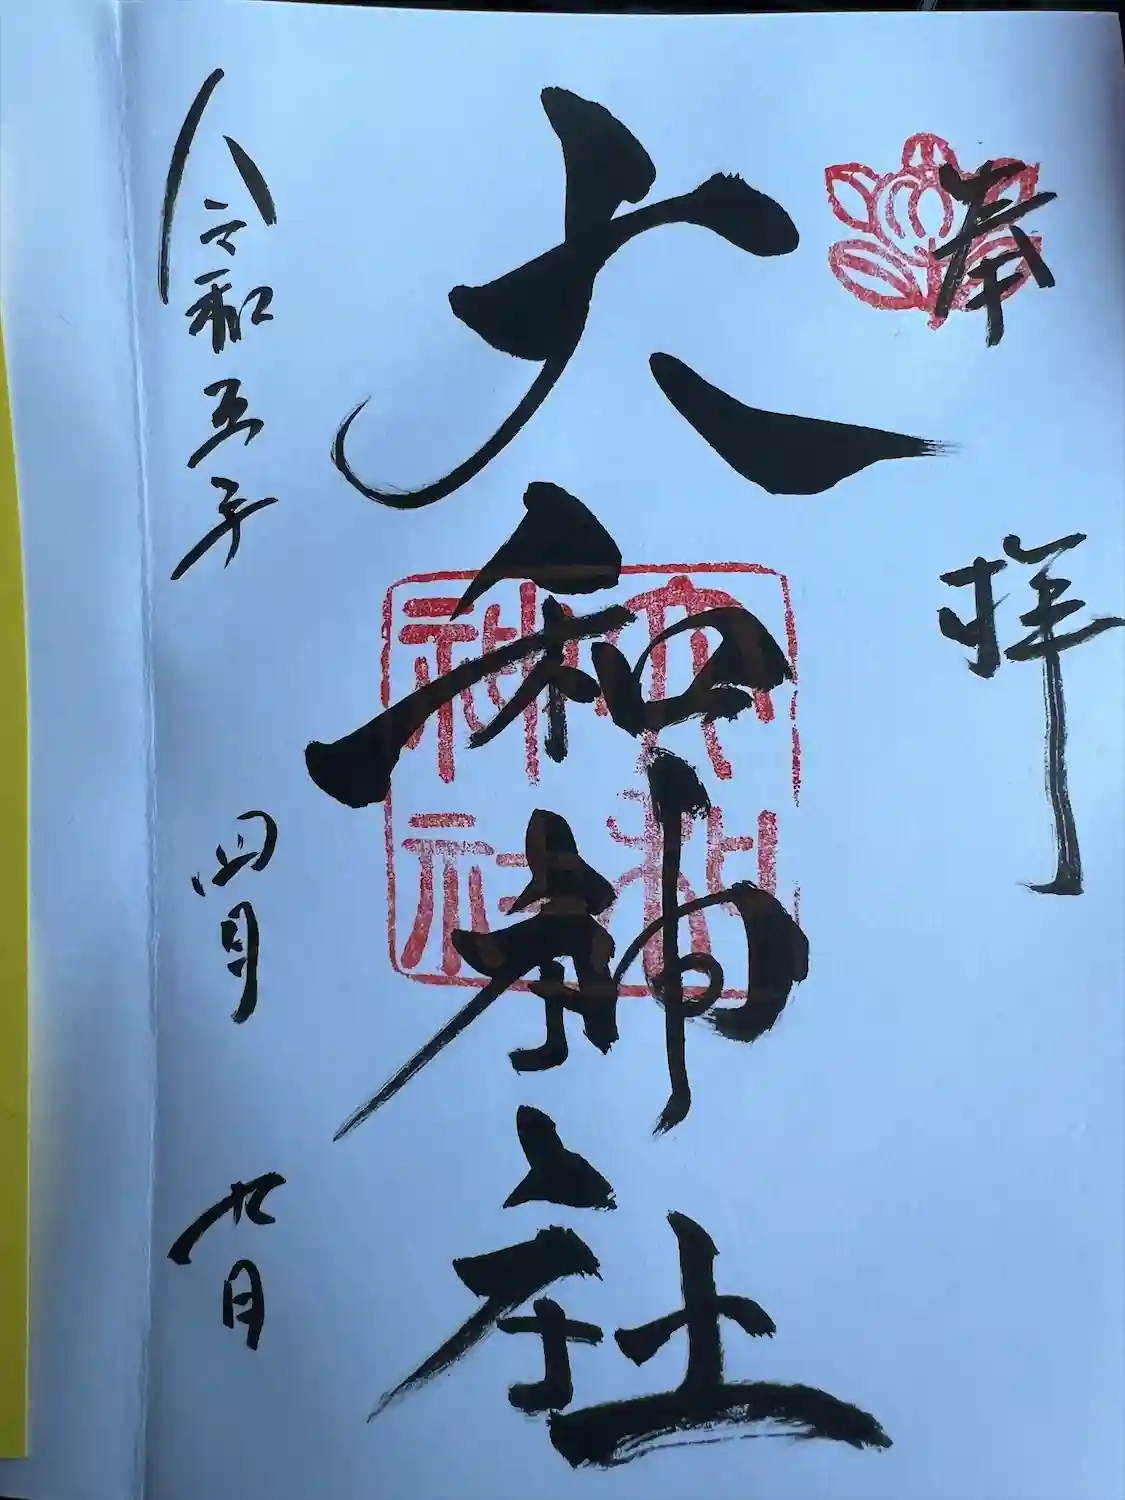 奉拝
大和神社
大和神社
令和五年 四月 九日